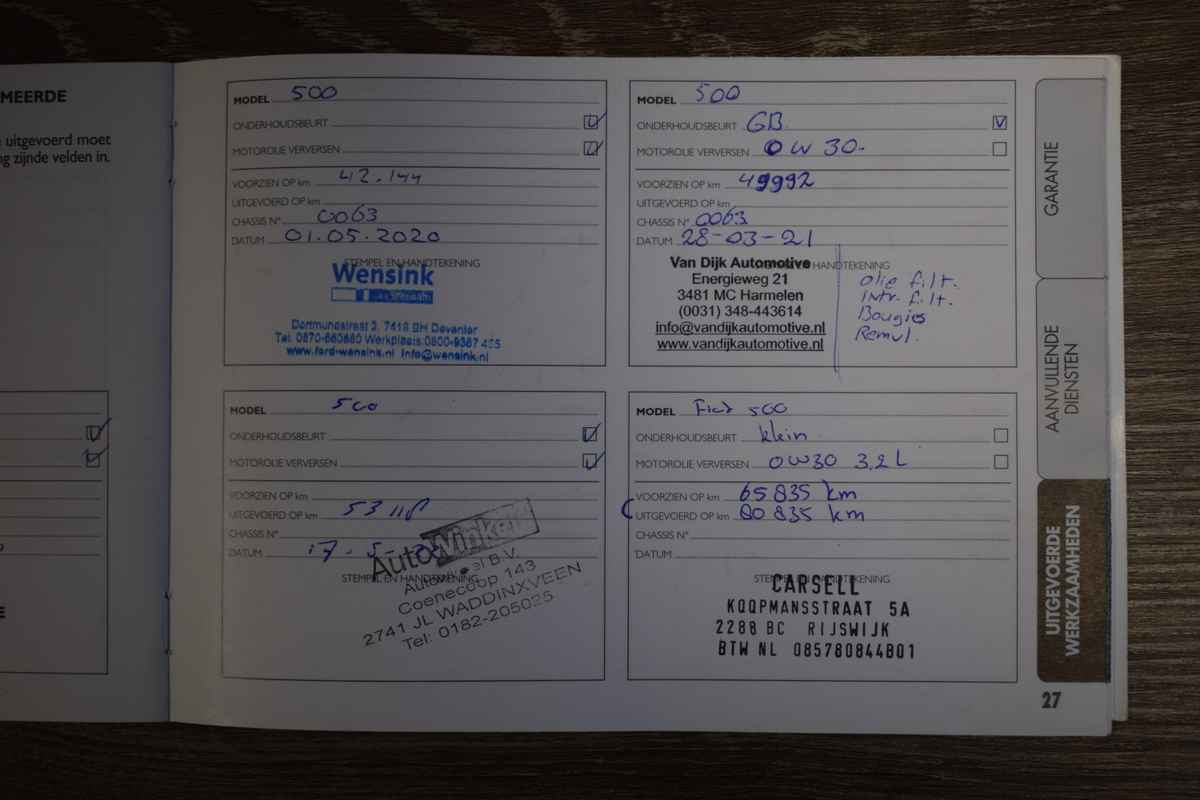 MEERDE
uitgevoerd moet
ng zijnde velden in.
MODEL 500
ONDERHOUDSBEURT
MOTOROLIE VERVERSEN
VOORZIEN OP km 42.144
UITGEVOERD OP km
CHASSIS N° 0063
DATUM 01.05.2020
STEMPEL EN HANDTEKENING
Wensink
Dortmundstraat 2, 7418 BH Deventer
Tel. 0870-660660 Werkplaats 0800-9367 465
www.ford-wensink.nl info@wensink.nl
MODEL 500
ONDERHOUDSBEURT GB.
MOTOROLIE VERVERSEN 0W30.
VOORZIEN OP km 49992
UITGEVOERD OP km
CHASSIS N° 0063
DATUM 28-03-21
HANDTEKENING
Van Dijk Automotive
Energieweg 21
3481 MC Harmelen
(0031) 348-443614
info@vandijkautomotive.nl
www.vandijkautomotive.nl
olie filt.
Intr. filt.
Bougies
Remvl.
MODEL 500
ONDERHOUDSBEURT
MOTOROLIE VERVERSEN
VOORZIEN OP km
UITGEVOERD OP km
CHASSIS N°
DATUM 17-5-
STEMPEL EN HANDTEKENING
AutoWinkel
B.V.
Coenecoop 143
2741 JL WADDINXVEEN
Tel: 0182-205025
MODEL Fiat 500
ONDERHOUDSBEURT klein
MOTOROLIE VERVERSEN 0W30 3,2L
VOORZIEN OP km 65835 km
UITGEVOERD OP km 80835 km
CHASSIS N°
DATUM
STEMPEL EN HANDTEKENING
CARSELL
KOOPMANSSTRAAT 5A
2288 BC RIJSWIJK
BTW NL 085780844B01
GARANTIE
AANVULLENDE
DIENSTEN
UITGEVOERDE
WERKZAAMHEDEN
27